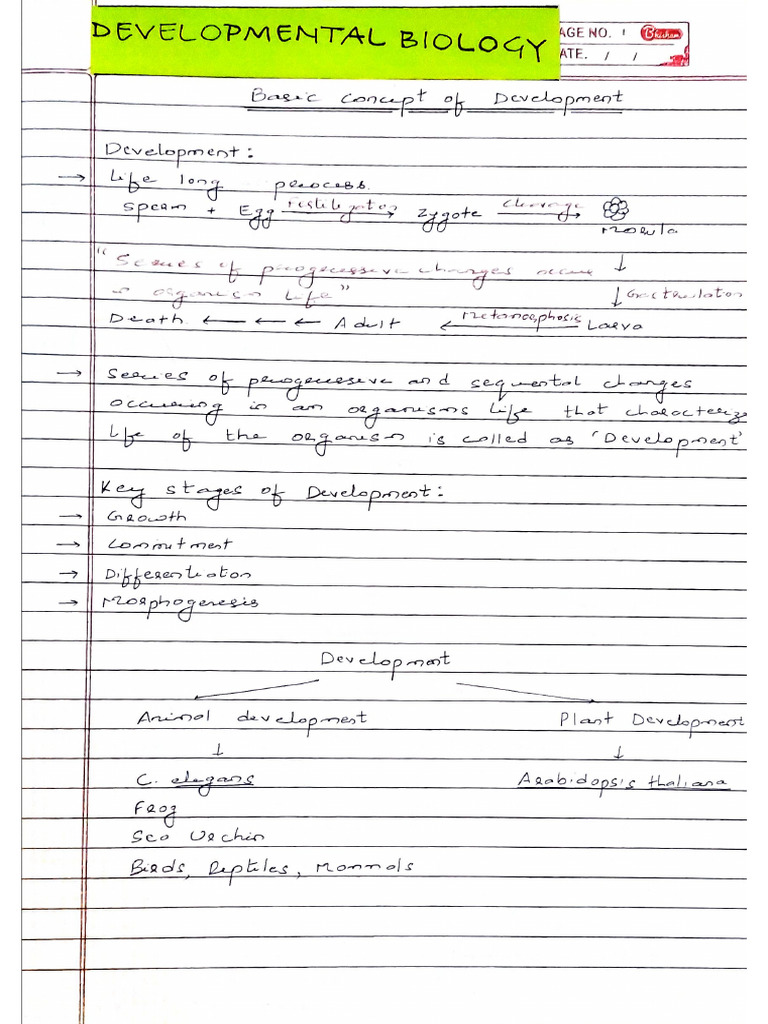 DEVELOPMENTAL BIOLOGY
AGE NO. 1 Bhisham
ATE. / /
Basic concept of Development
Development:
→ Life long process.
Sperm + Egg → Zygote cleavage →
Morula
"Series of progressive changes occurs
in organism life"
Death ← ← ← Adult ← Metamorphosis Larva
→ Series of progressive and sequential changes
occuring in an organisms life that characterize
life of the organism is called as 'Development'
Key stages of Development:
→ Growth
→ Commitment
→ Differentiation
→ Morphogenesis
Development
Animal development Plant Development
↓ ↓
C. elegans Arabidopsis thaliana
Frog
Sea Urchin
Birds, Reptiles, Mammals